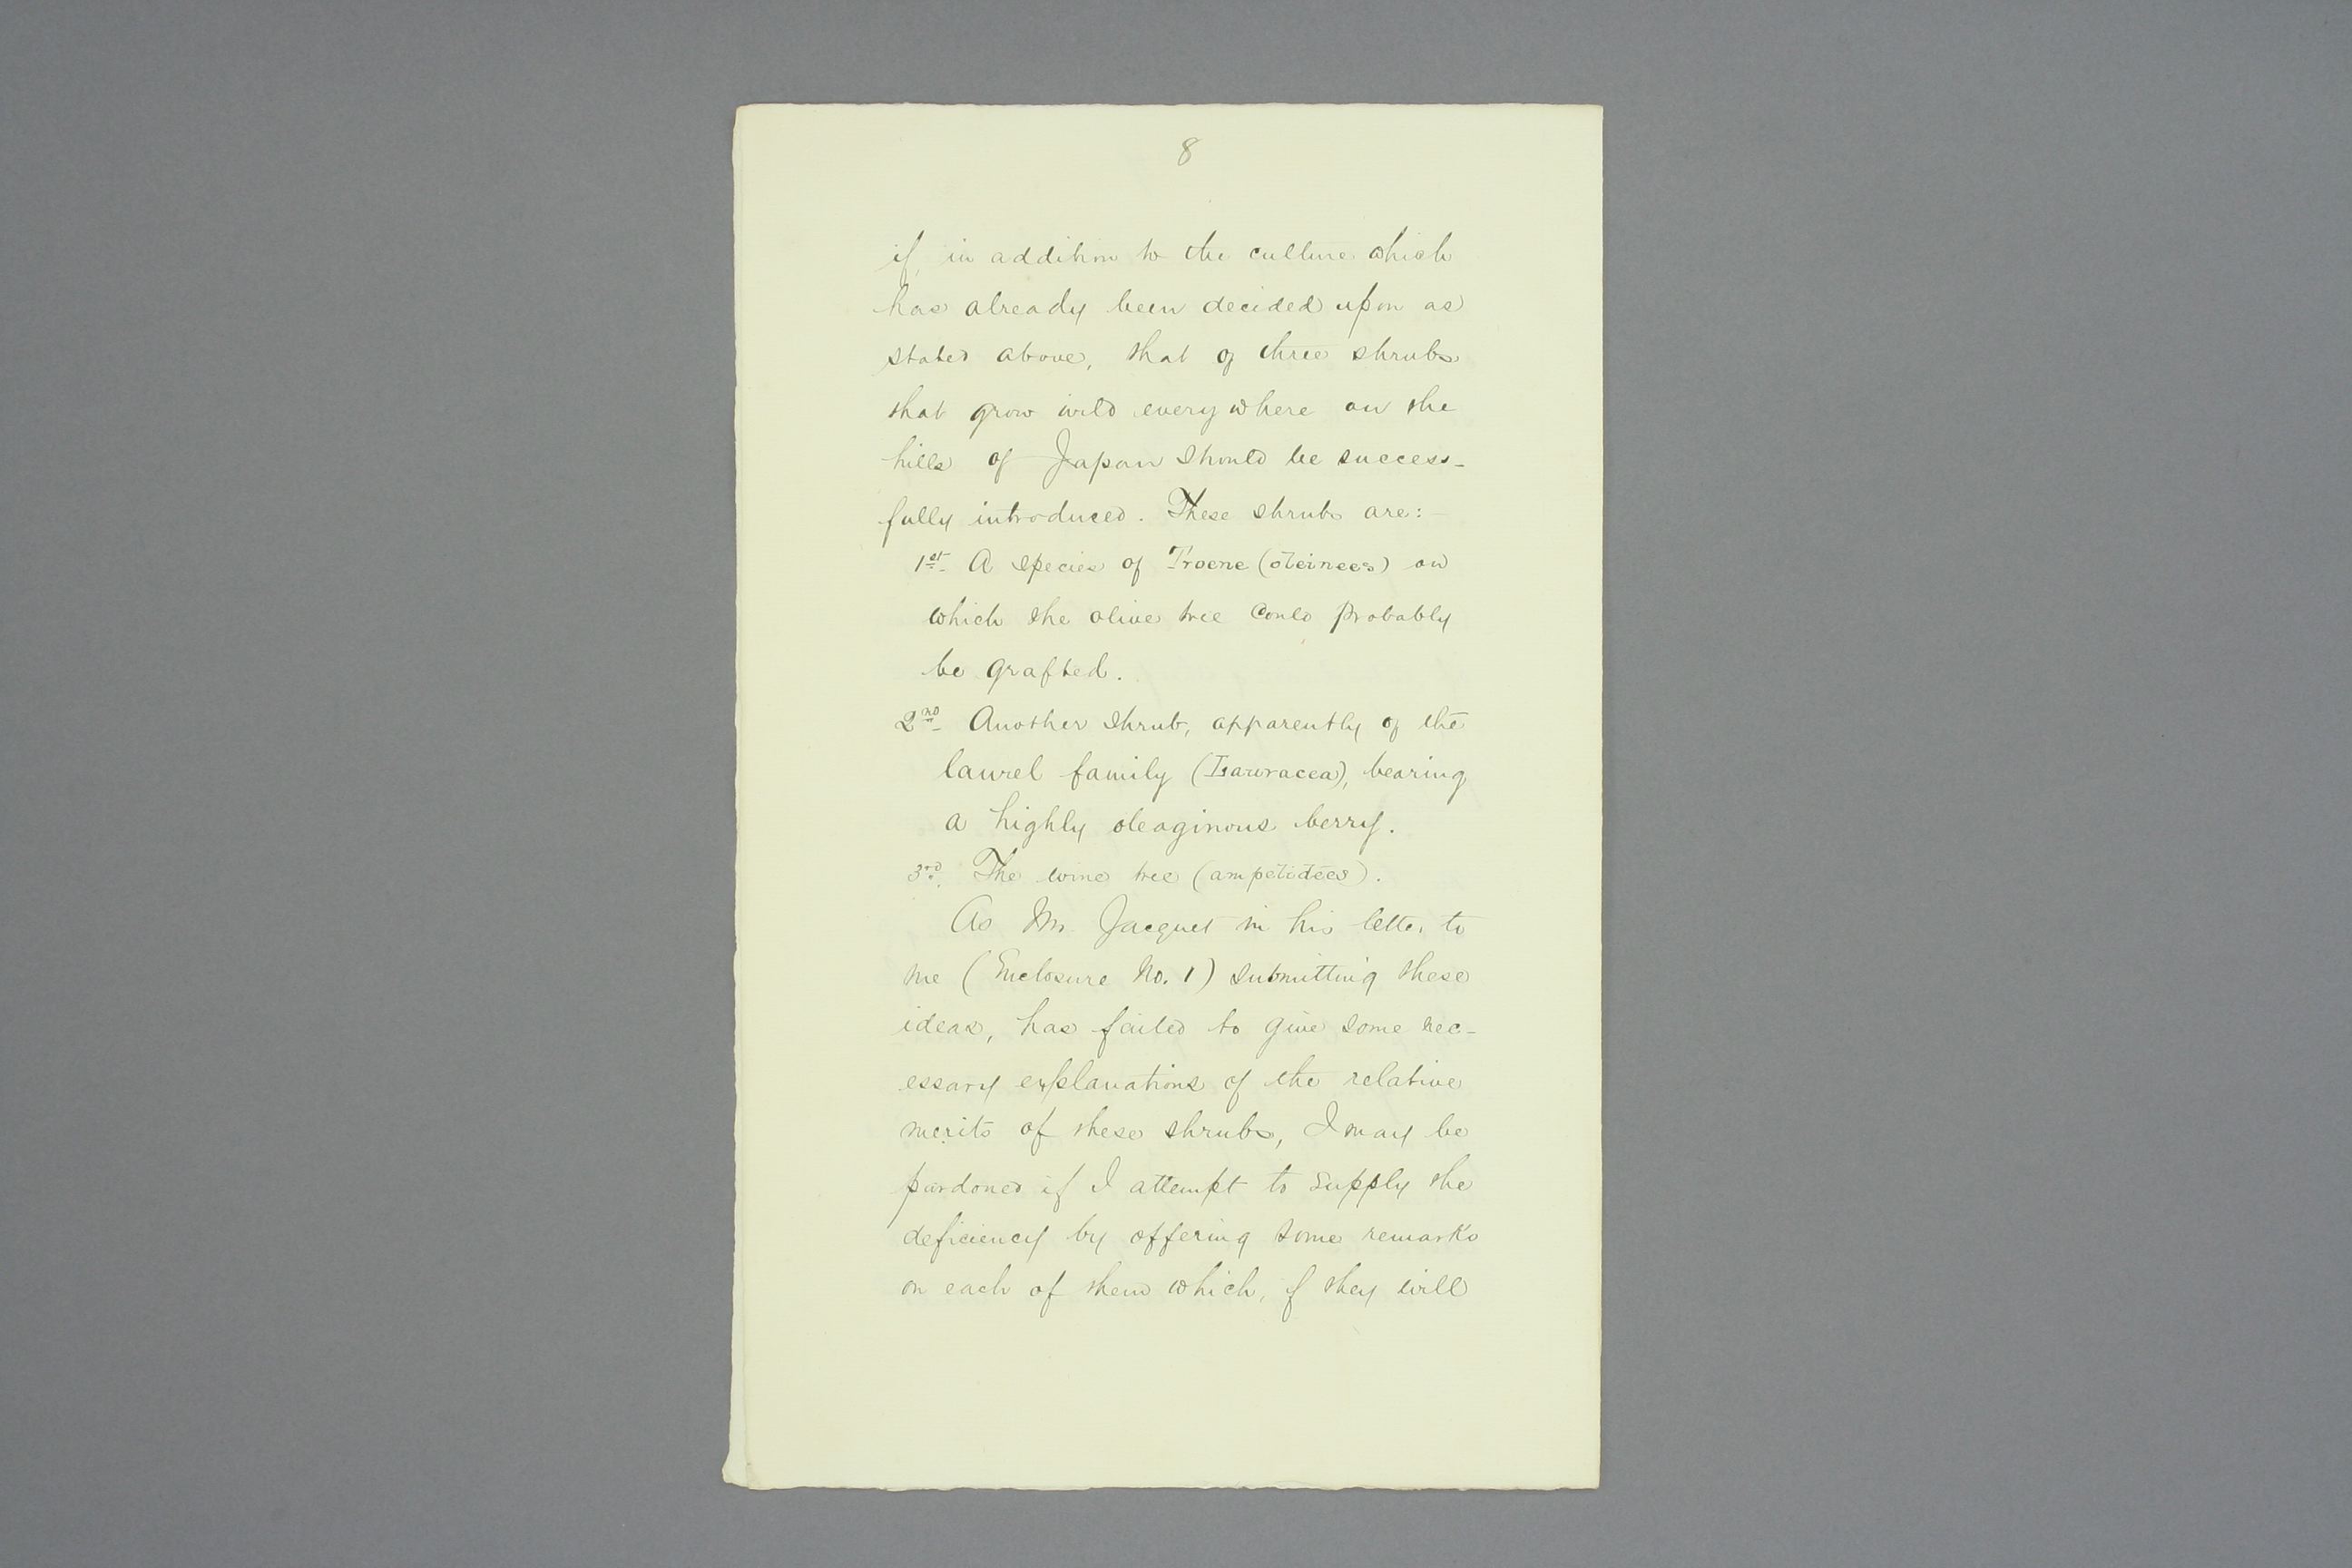 8
if, in addition to the culture which
has already been decided upon as
stated above, that of three shrubs
that grow wild everywhere on the
hills of Japan should be success-
fully introduced. These shrubs are:-
1st. A species of Troene (oleinees) on
which the olive tree could probably
be grafted.
2nd. Another shrub, apparently of the
laurel family (Lauracea), bearing
a highly oleaginous berry.
3rd. The wine tree (ampelidées).
As Mr. Jacquet in his letter to
me (Enclosure No. 1) submitting these
ideas, has failed to give some nec-
essary explanations of the relative
merits of these shrubs, I may be
pardoned if I attempt to supply the
deficiency by offering some remarks
on each of them which, if they will